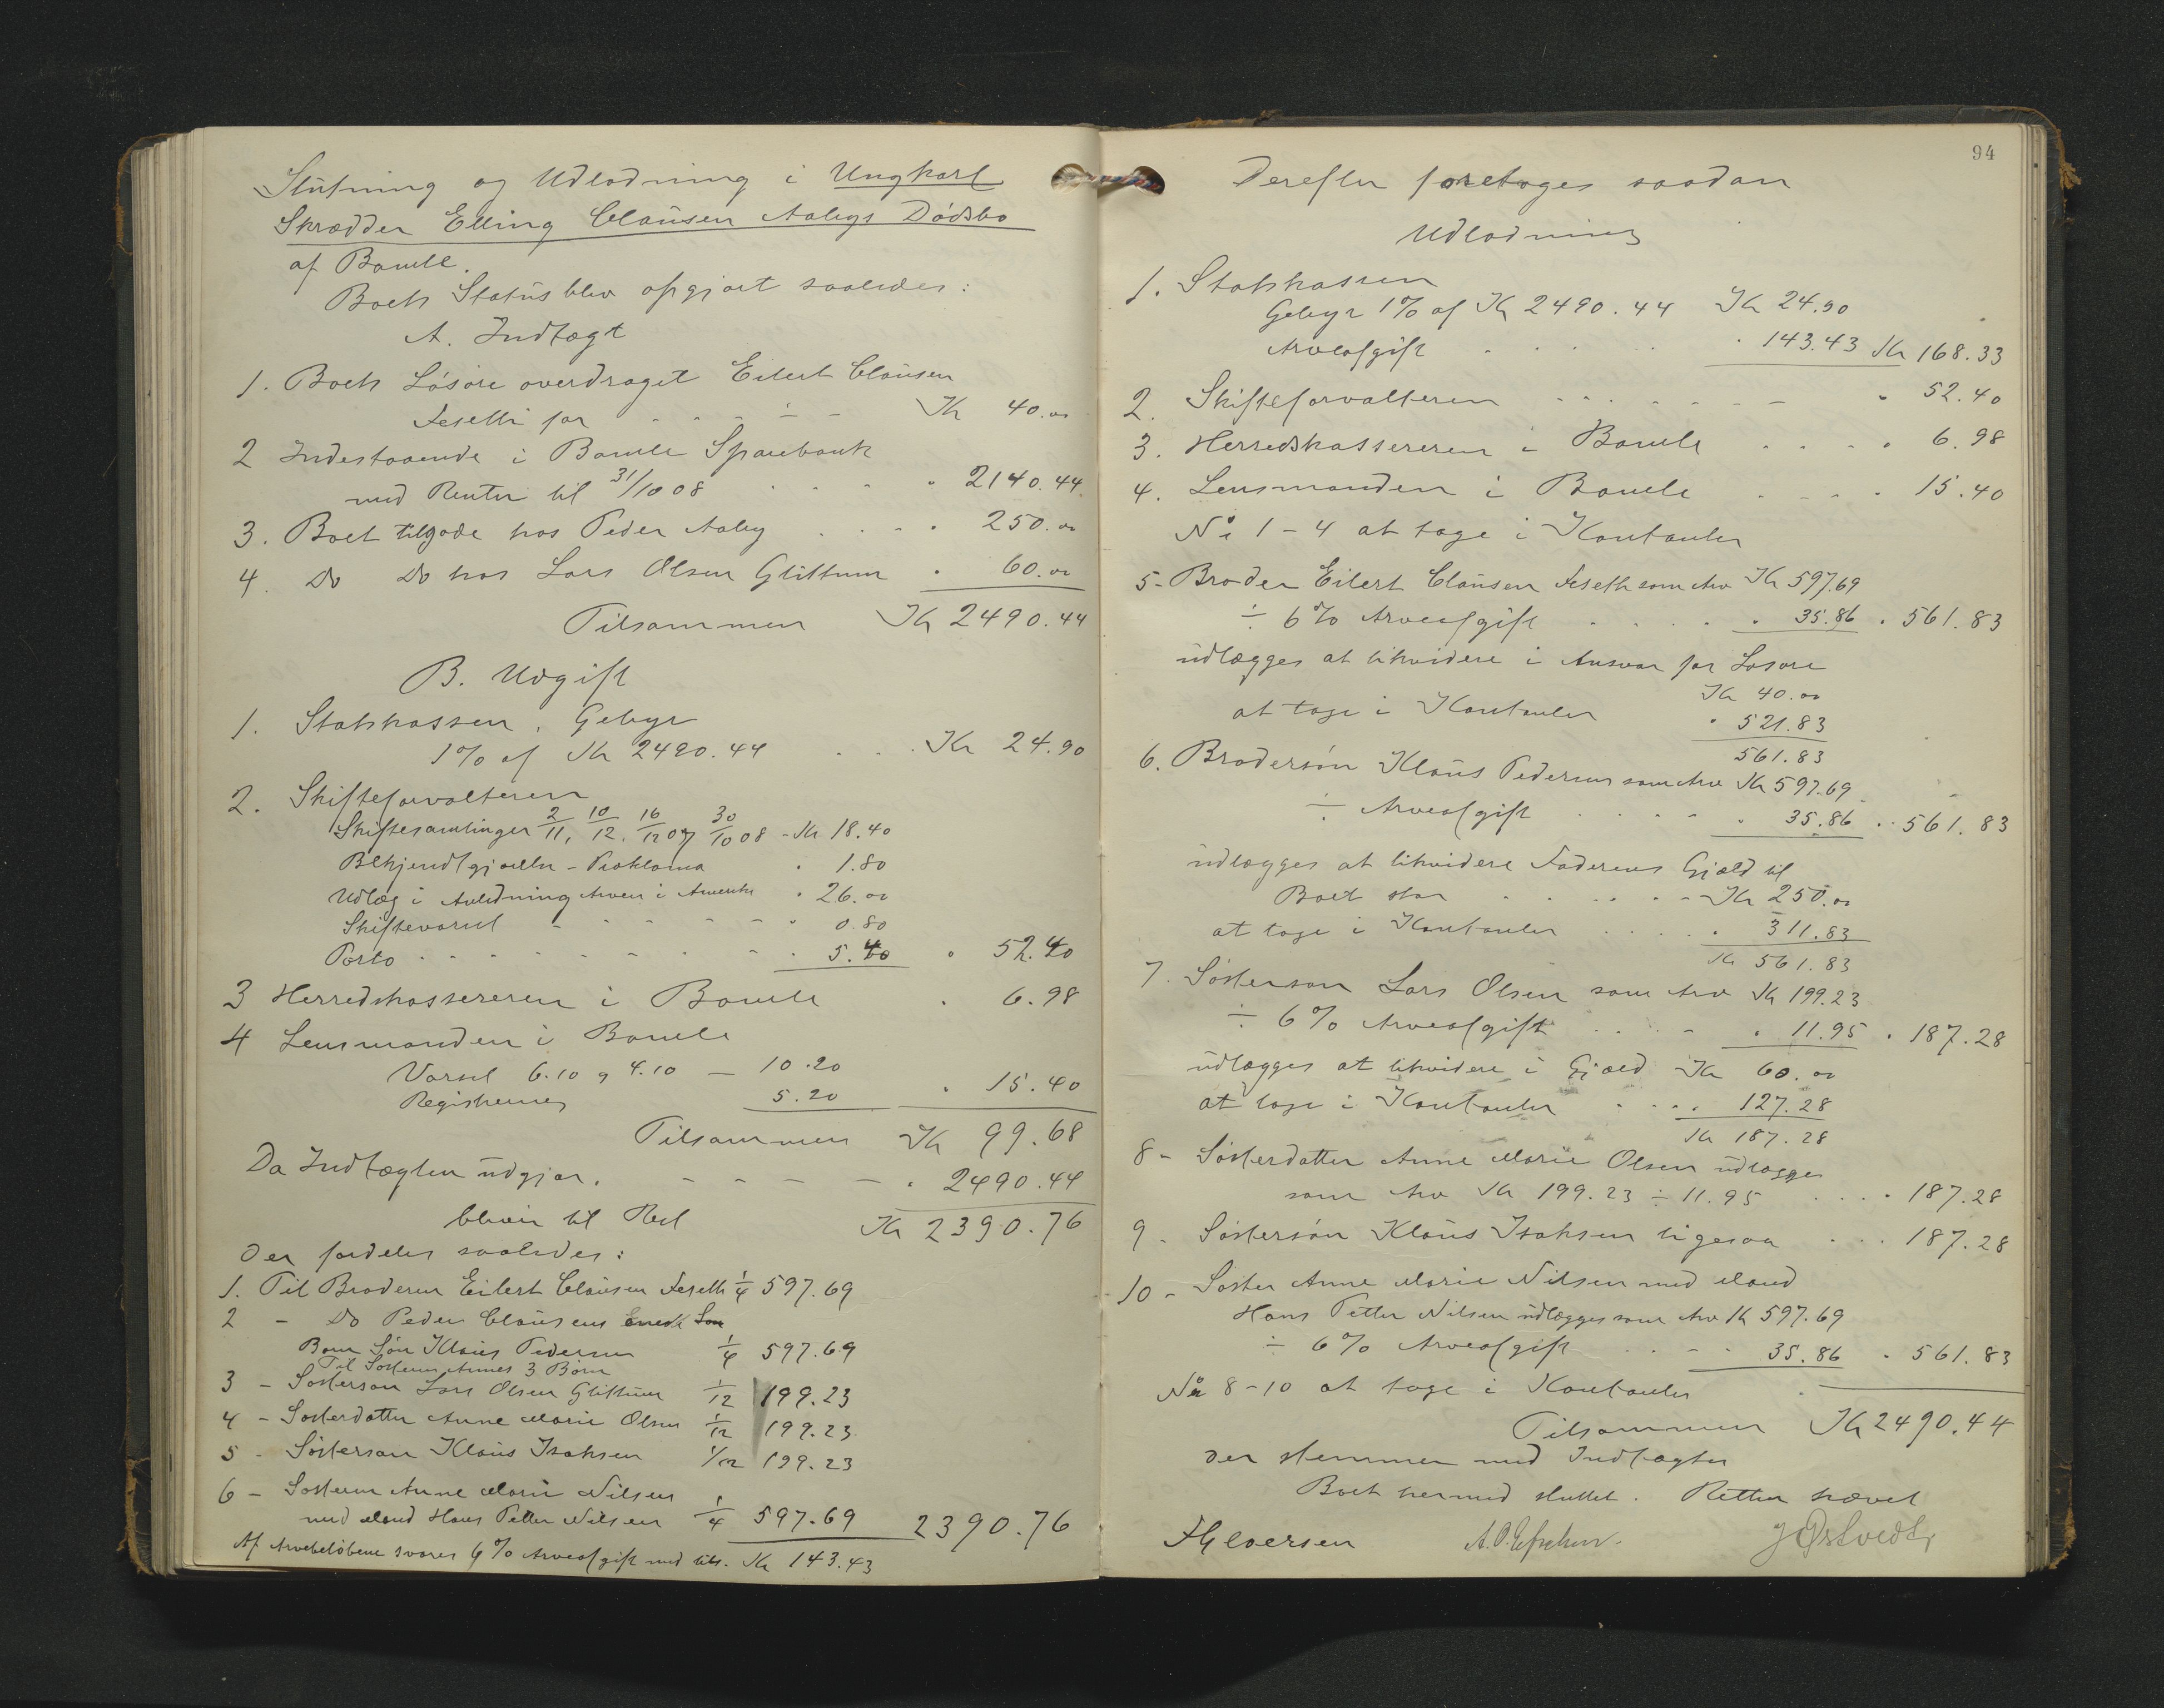 Slutning og Udlodning i Ungkarl
Skrædder Elling Clausen Aabys Dødsbo
af Bamle.
Boets Status blev opgjort saaledes:
A. Indtægt
1. Boets Løsøre overdraget Eilert Clausen
Feseth for - - - - - Kr 40.00
2 Indestaaende i Bamle Sparebank
med Renter til 31/10 08 . . . . 2140.44
3. Boet tilgode hos Peder Aaby . . . . 250.00
4. Do Do hos Lars Olsen Glittum . 60.00
Tilsammen Kr 2490.44
B. Udgift
1. Statskassen, Gebyr
1% af Kr 2490.44 . . . Kr 24.90
2. Skifteforvalteren
Skiftesamlinger 2/11, 10/12, 16/12 07 30/10 08 - Kr 18.40
Bekjendtgjørelse - Proklama . 1.80
Udlæg i Anledning Arven i Amerika . 26.00
Skiftevarsel - - - - - . 0.80
Porto . . . . . . . 5.40 . 52.40
3 Herredskassereren i Bamle . 6.98
4 Lensmanden i Bamle
Varsel 6.10 og 4.10 — 10.20
Registrering 5.20 . 15.40
Tilsammen Kr 99.68
Da Indtægten udgjør. - - - - . 2490.44
bliver til Rest Kr 2390.76
der fordeles saaledes:
1. Til Broderen Eilert Clausen Feseth 1/4 597.69
2 - Do Peder Clausens eneste Søn
Barn Søn Klaus Pedersen 1/4 597.69
Til Søsteren Annes 3 Børn
3 - Søstersøn Lars Olsen Glittum 1/12 199.23
4 - Søsterdatter Anne Marie Olsen 1/12 199.23
5 - Søstersøn Klaus Isaksen 1/12 199.23
6 - Søsteren Anne Marie Nilsen
med Mand Hans Petter Nilsen 1/4 597.69 2390.76
Af Arvebeløbene svares 6% Arveafgift med tils. Kr 143.43
94
Derefter foretoges saadan
Udlodning
1. Statskassen
Gebyr 1% af Kr 2490.44 Kr 24.90
Arveafgift . . . . . 143.43 Kr 168.33
2. Skifteforvalteren . . . - - - - . 52.40
3. Herredskassereren i Bamle . . . . 6.98
4. Lensmanden i Bamle . . . . 15.40
No 1-4 at tage i Kontanter
5- Broder Eilert Clausen Feseth som Arv Kr 597.69
÷ 6% Arveafgift . . . . . 35.86 . 561.83
udlægges at likvidere i Ansvar for Løsøre
Kr 40.00
at tage i Kontanter . 521.83
561.83
6. Brodersøn Klaus Pedersen som Arv Kr 597.69
÷ Arveafgift . . . . . 35.86 . 561.83
udlægges at likvidere Faderens Gjæld til
Boet stor . . . . . - Kr 250.00
at tage i Kontanter . . . . . 311.83
Kr 561.83
7. Søstersøn Lars Olsen som Arv Kr 199.23
÷ 6% Arveafgift . . . . 11.95 . 187.28
udlægges at likvidere i Gjæld Kr 60.00
at tage i Kontanter . . . . 127.28
Kr 187.28
8- Søsterdatter Anne Marie Olsen udlægges
som Arv Kr 199.23 ÷ 11.95 . . . . 187.28
9- Søstersøn Klaus Isaksen ligesaa . . . 187.28
10- Søster Anne Marie Nilsen med Mand
Hans Petter Nilsen udlægges som Arv Kr 597.69
÷ 6% Arveafgift . . - - 35.86 . 561.83
No 8-10 at tage i Kontanter
Tilsammen Kr 2490.44
der stemmer med Indtægten
Boet hermed sluttet. Retten hævet
J Østvedt